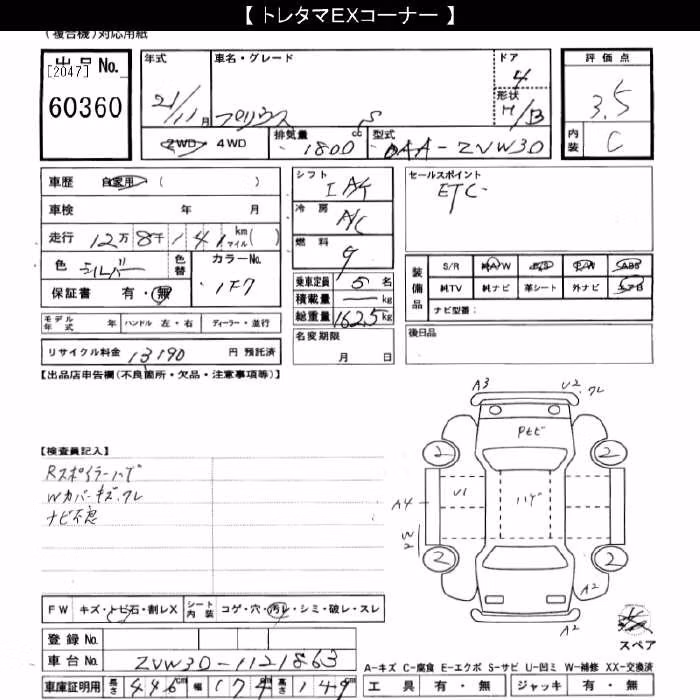 【 トレタマEXコーナー 】
(複合機)対応用紙
出品 No.
[2047]
60360
年式 21/11月
車名・グレード プリウス S
ドア 4
形状 H/B
評価点 3.5
内装 C
2WD 4WD 排気量 1800 cc 型式 DAA-ZVW30
車歴 自家用 ( )
車検 年 月
走行 12万8千141 km マイル( )
色 シルバー 色替 カラーNo. 1F7
保証書 有・無
シフト IAT
冷房 A/C
燃料 g
乗車定員 5名
積載量 kg
総重量 1625 kg
名変期限 月 日
セールスポイント
ETC
装備品 S/R 純A/W P/S P/W ABS
純TV 純ナビ 革シート 外ナビ エアB
ナビ型番:
後日品
モデル年式 年 ハンドル 左・右 ディーラー・並行
リサイクル料金 13190 円 預託済
【出品店申告欄(不良箇所・欠品・注意事項等)】
A3 U2.ワレ
Pトビ
2 2
A4 U1 ハゲ
W2
2 2
A2
A2
【検査員記入】
Rスポイラーハゲ
Wカバーキズ.ワレ
ナビ不息
FW キズ・トビ石・割レX シート内装 コゲ・穴・汚レ・シミ・破レ・スレ
登録 No.
車台 No. ZVW30-1121863
車庫証明用 長さ 446cm 幅 174cm 高さ 149cm
スペア
A-キズ C-腐食 E-エクボ S-サビ U-凹ミ W-補修 XX-交換済
工具 有・無 ジャッキ 有・無